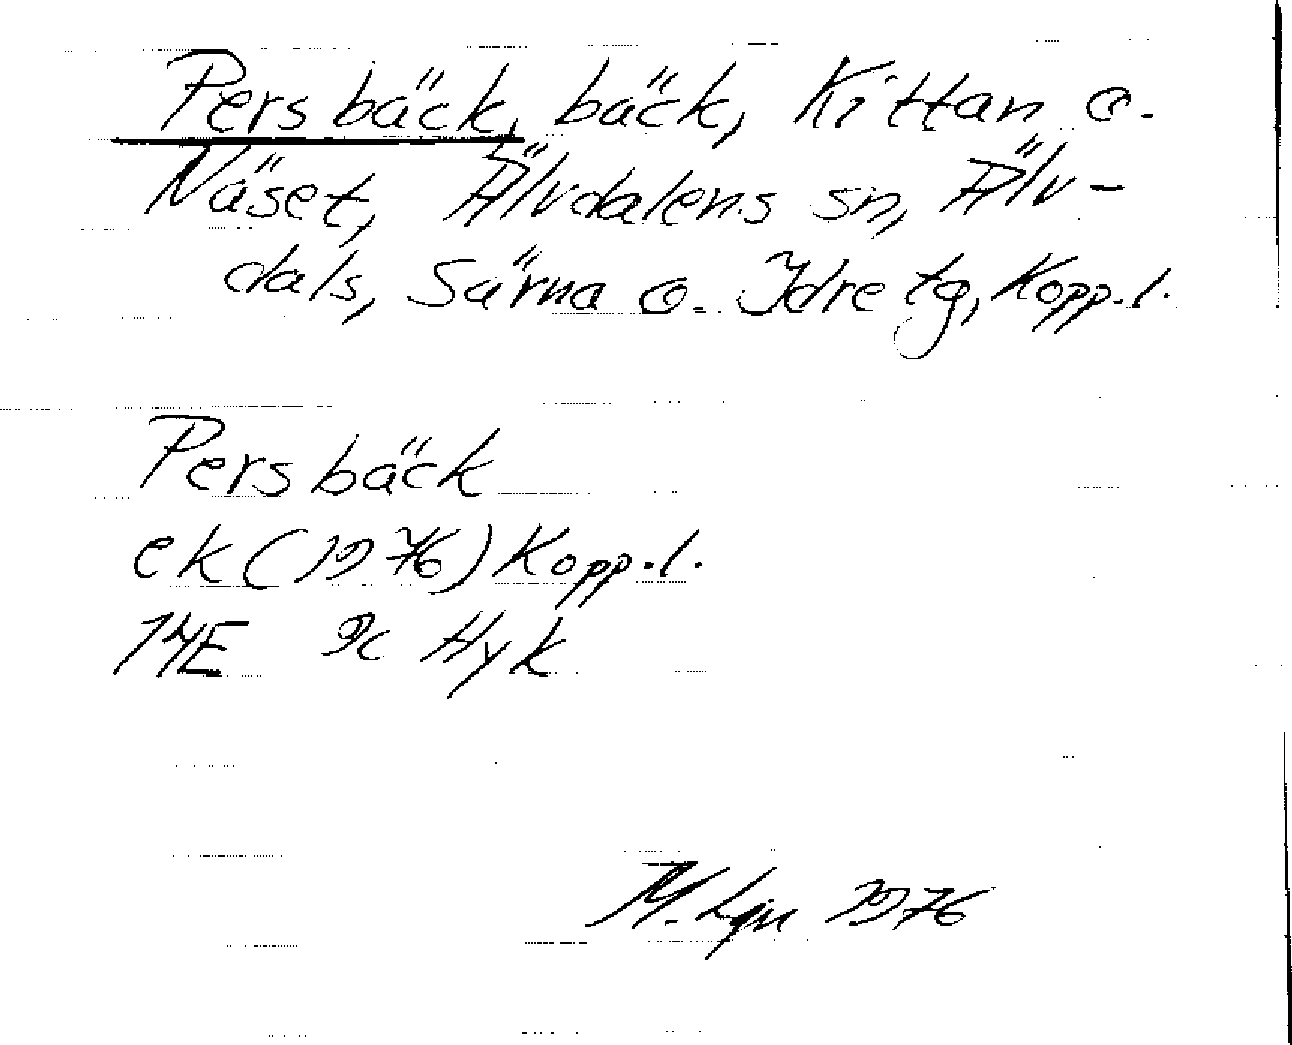 Persbäck, bäck, Kittan o.
Näset, Älvdalens sn, Älv-
dals, Särna o. Idre tg, Kopp.l.
Persbäck
ek (1976) Kopp.l.
14E 9c Hyk
M. Lgn 1976